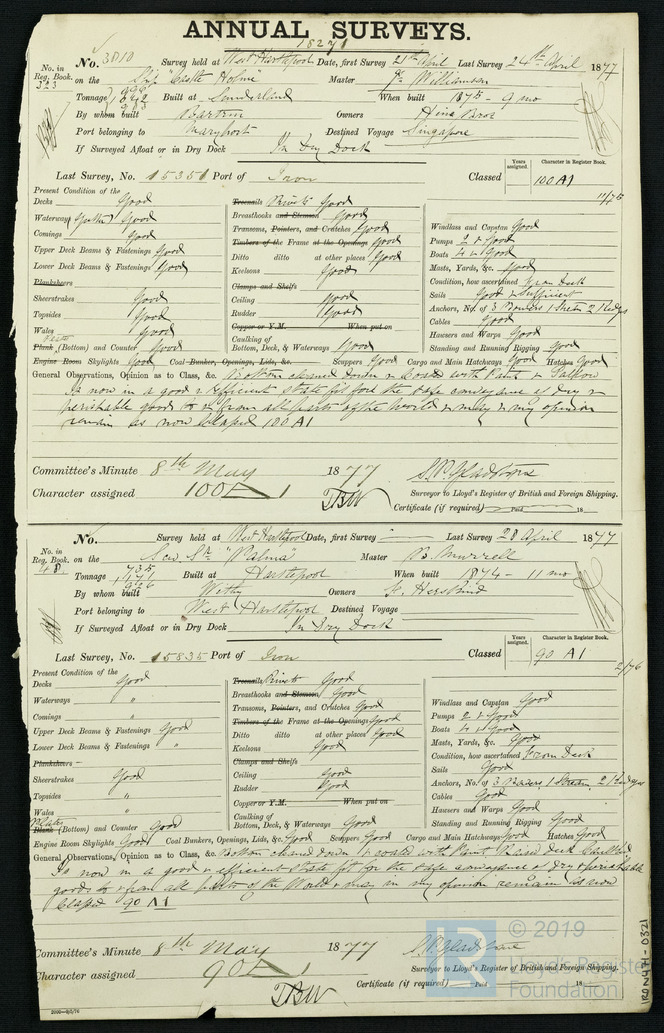 ANNUAL SURVEYS.
No. 3810 Survey held at West Hartlepool Date, first Survey 21st April Last Survey 24th April 1877
No. in Reg. Book.
323
on the Ship "Castle Holme" Master Williamson
Tonnage Built at Sunderland When built 1875 - 9 mo
By whom built Bartram Owners Hine Bros
Port belonging to Maryport Destined Voyage Singapore
If Surveyed Afloat or in Dry Dock In Dry Dock
Last Survey, No. 15351 Port of Iron Classed Years assigned. Character in Register Book. 100 A1
11/75
Present Condition of the
Decks Good
Waterways Good
Comings Good
Upper Deck Beams & Fastenings Good
Lower Deck Beams & Fastenings Good
Planksheers
Sheerstrakes Good
Topsides Good
Wales Good
Plank (Bottom) and Counter Good
Engine Room Skylights Good Coal Bunker, Openings, Lids, &c.
Treenails Rivets Good
Breasthooks and Stemson Good
Transoms, Pointers, and Crutches Good
Timbers of the Frame at the Openings Good
Ditto ditto at other places Good
Keelsons Good
Clamps and Shelfs
Ceiling Good
Rudder Good
Copper or Y.M. When put on
Caulking of Bottom, Deck, & Waterways Good
Scuppers Good Cargo and Main Hatchways Good Hatches Good
Windlass and Capstan Good
Pumps 2 & Good
Boats 4 & Good
Masts, Yards, &c. Good
Condition, how ascertained From Deck
Sails Good & Sufficient
Anchors, No. of 3 Bowers 1 Stream 2 Kedges
Cables Good
Hawsers and Warps Good
Standing and Running Rigging Good
General Observations, Opinion as to Class, &c. Bottom cleaned down & Coated with Paint & Tallow
Is now in a good & efficient state fit for the safe conveyance of dry &
perishable goods to & from all parts of the World & may in my opinion
remain as now Classed 100 A1
Committee's Minute 8th May 1877
Character assigned 100 A 1
Surveyor to Lloyd's Register of British and Foreign Shipping.
Certificate (if required) Paid 18
No. Survey held at West Hartlepool Date, first Survey Last Survey 28 April 1877
No. in Reg. Book.
48
on the Scw Sr "Palma" Master Murrell
Tonnage Built at Hartlepool When built 1874 - 11 mo
By whom built Withy Owners
Port belonging to West Hartlepool Destined Voyage
If Surveyed Afloat or in Dry Dock In Dry Dock
Last Survey, No. 15835 Port of Iron Classed Years assigned. Character in Register Book. 90 A1
2/76
Present Condition of the
Decks Good
Waterways "
Comings "
Upper Deck Beams & Fastenings Good
Lower Deck Beams & Fastenings "
Planksheers
Sheerstrakes Good
Topsides "
Wales "
Plank (Bottom) and Counter Good
Engine Room Skylights Good Coal Bunkers, Openings, Lids, &c. Good
Treenails Rivets Good
Breasthooks and Stemson Good
Transoms, Pointers, and Crutches Good
Timbers of the Frame at the Openings Good
Ditto ditto at other places Good
Keelsons Good
Clamps and Shelfs
Ceiling Good
Rudder Good
Copper or Y.M. When put on
Caulking of Bottom, Deck, & Waterways Good
Scuppers Good Cargo and Main Hatchways Good Hatches Good
Windlass and Capstan Good
Pumps 2 & Good
Boats 4 & Good
Masts, Yards, &c. Good
Condition, how ascertained From Deck
Sails Good
Anchors, No. of 3 Bowers 1 Stream 2 Kedges
Cables Good
Hawsers and Warps Good
Standing and Running Rigging Good
General Observations, Opinion as to Class, &c. Bottom cleaned down & coated with Paint, Raised Deck Caulked
Is now in a good & efficient state fit for the safe conveyance of Dry & perishable
goods to & from all parts of the World & may in my opinion remain as now
Classed 90 A1
Committee's Minute 8th May 1877
Character assigned 90 A 1
Surveyor to Lloyd's Register of British and Foreign Shipping.
Certificate (if required) Paid 18
© 2019
Lloyd's Register
Foundation
IRON471-0321